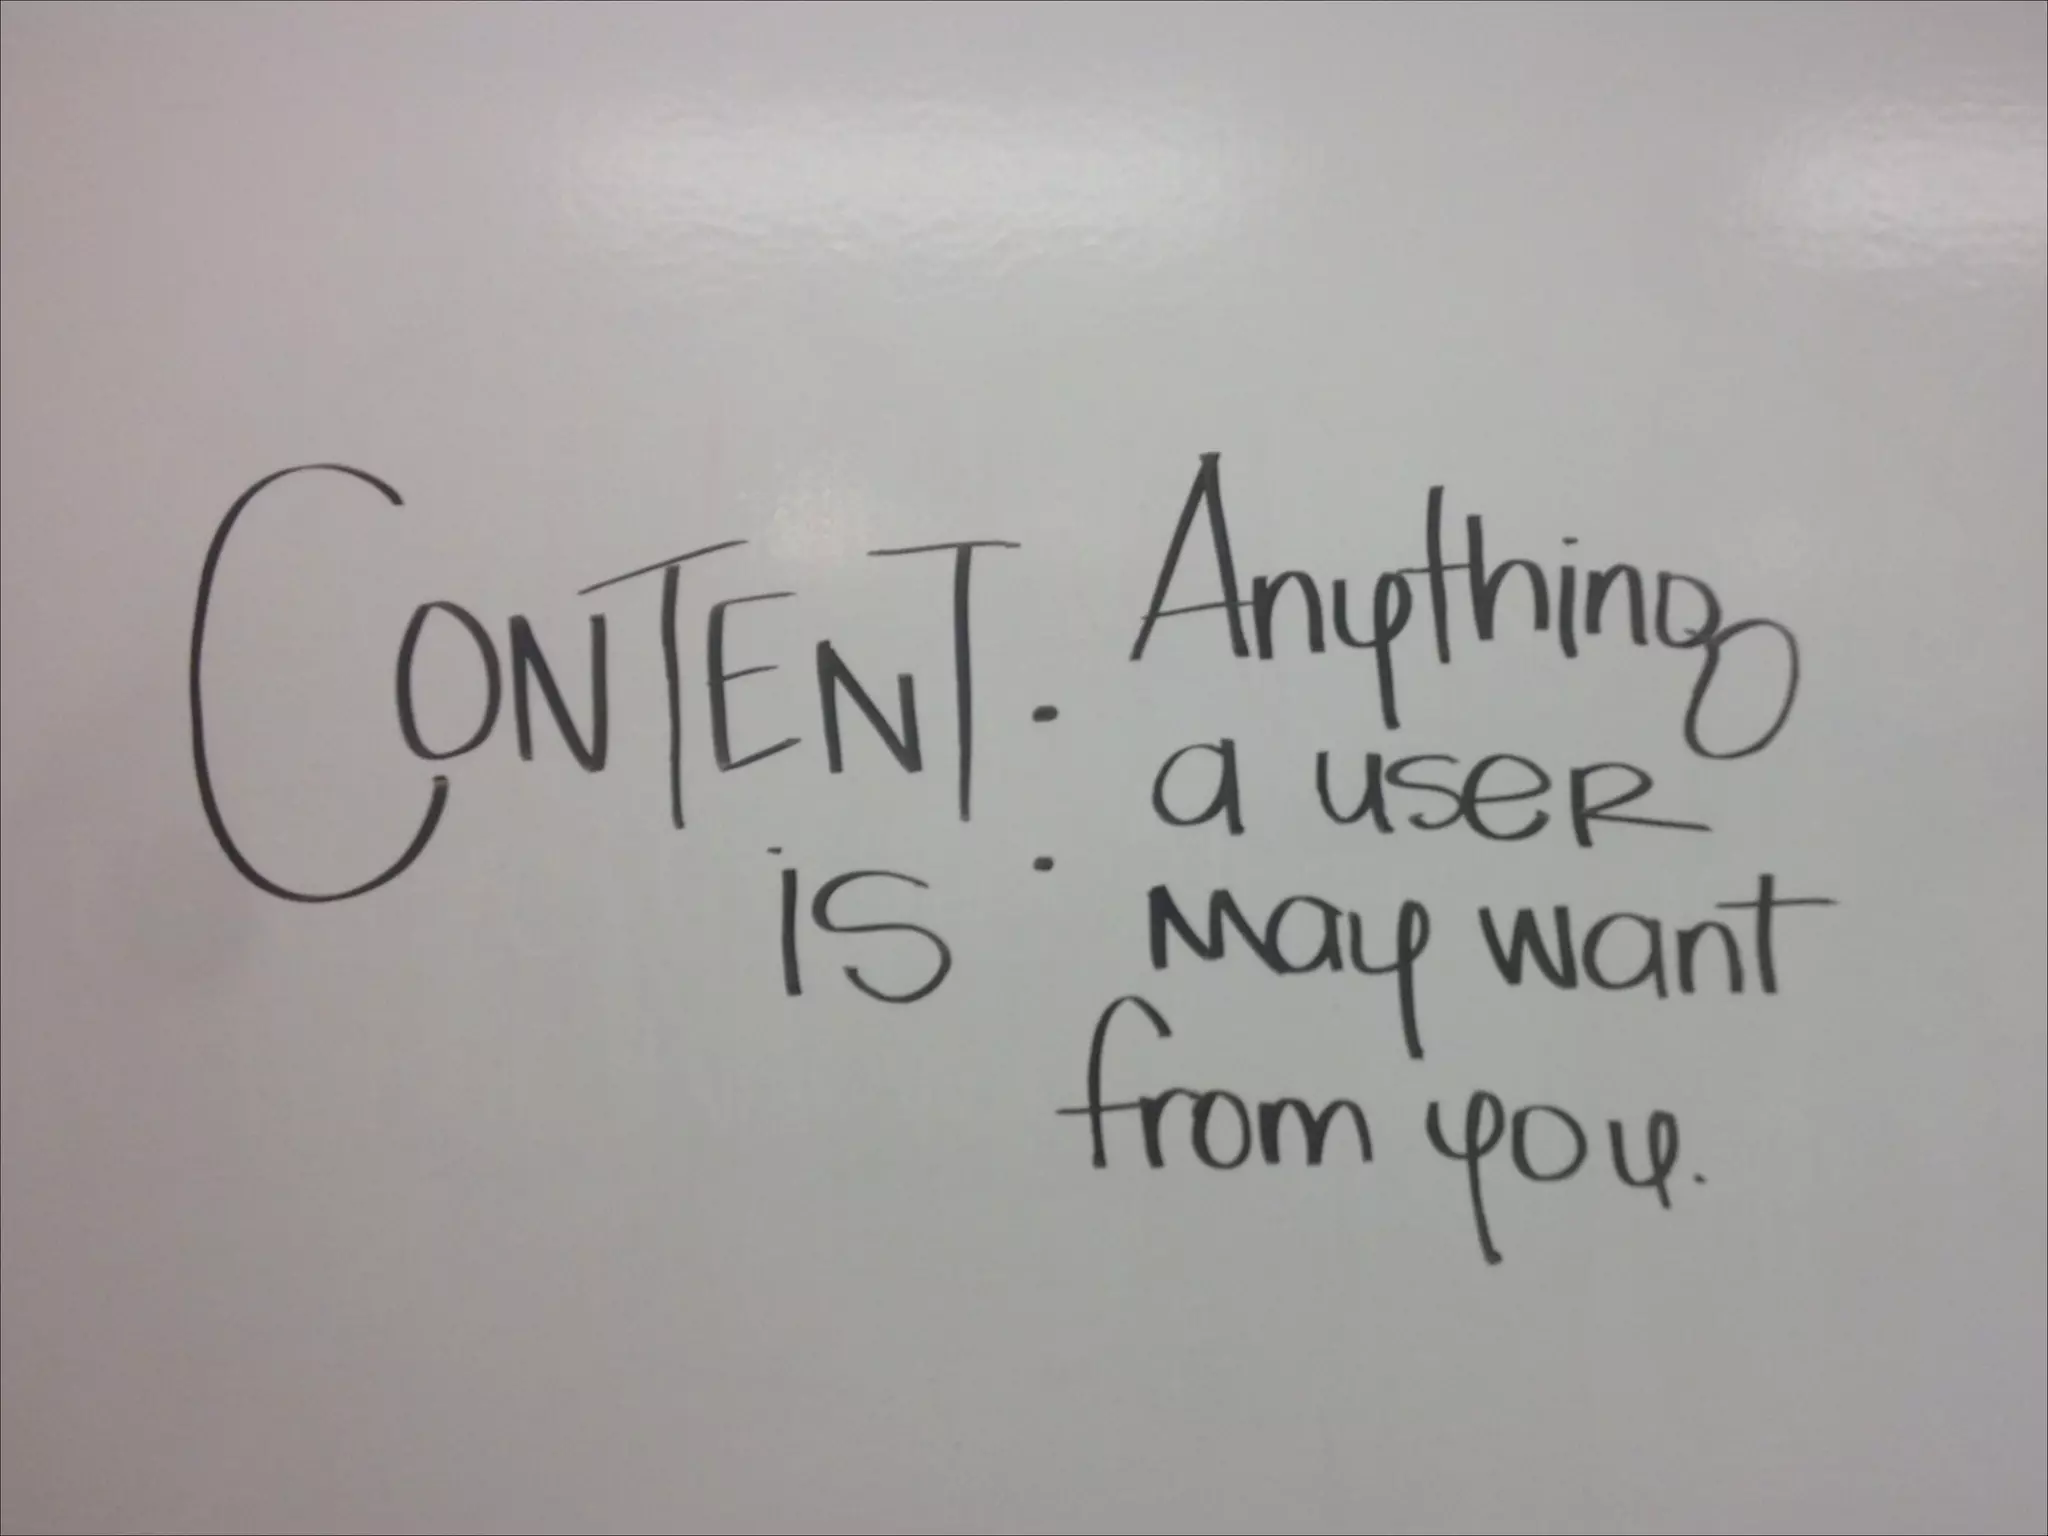 CONTENT is:
Anything
a user
may want
from you.